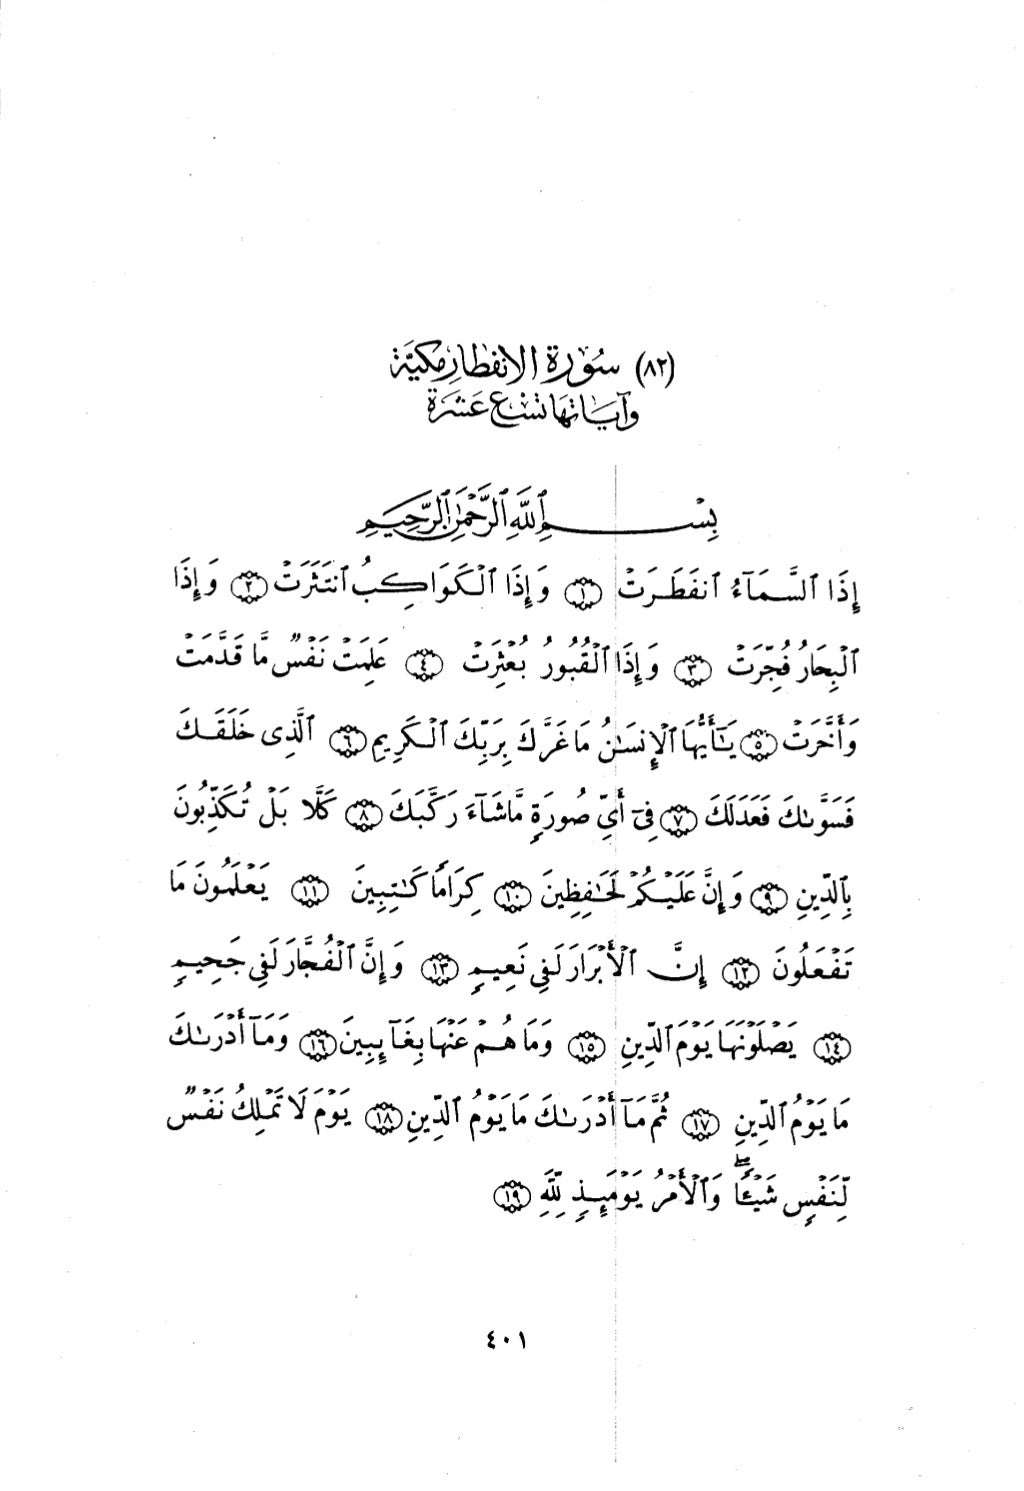 (٨٢) سُورَةُ الانفِطَارِ مَكِيَّة
وَآيَاتُهَا تِسْعَ عَشْرَة
بِسْمِ ٱللَّهِ ٱلرَّحْمَٰنِ ٱلرَّحِيمِ
إِذَا ٱلسَّمَآءُ ٱنفَطَرَتْ ١ وَإِذَا ٱلْكَوَاكِبُ ٱنتَثَرَتْ ٢ وَإِذَا
ٱلْبِحَارُ فُجِّرَتْ ٣ وَإِذَا ٱلْقُبُورُ بُعْثِرَتْ ٤ عَلِمَتْ نَفْسٌ مَّا قَدَّمَتْ
وَأَخَّرَتْ ٥ يَٰٓأَيُّهَا ٱلْإِنسَٰنُ مَا غَرَّكَ بِرَبِّكَ ٱلْكَرِيمِ ٦ ٱلَّذِى خَلَقَكَ
فَسَوَّىٰكَ فَعَدَلَكَ ٧ فِىٓ أَىِّ صُورَةٍ مَّا شَآءَ رَكَّبَكَ ٨ كَلَّا بَلْ تُكَذِّبُونَ
بِٱلدِّينِ ٩ وَإِنَّ عَلَيْكُمْ لَحَٰفِظِينَ ١٠ كِرَامًا كَٰتِبِينَ ١١ يَعْلَمُونَ مَا
تَفْعَلُونَ ١٢ إِنَّ ٱلْأَبْرَارَ لَفِى نَعِيمٍ ١٣ وَإِنَّ ٱلْفُجَّارَ لَفِى جَحِيمٍ
١٤ يَصْلَوْنَهَا يَوْمَ ٱلدِّينِ ١٥ وَمَا هُمْ عَنْهَا بِغَآئِبِينَ ١٦ وَمَآ أَدْرَىٰكَ
مَا يَوْمُ ٱلدِّينِ ١٧ ثُمَّ مَآ أَدْرَىٰكَ مَا يَوْمُ ٱلدِّينِ ١٨ يَوْمَ لَا تَمْلِكُ نَفْسٌ
لِّنَفْسٍ شَيْـًٔا ۖ وَٱلْأَمْرُ يَوْمَئِذٍ لِّلَّهِ ١٩
٤٠١